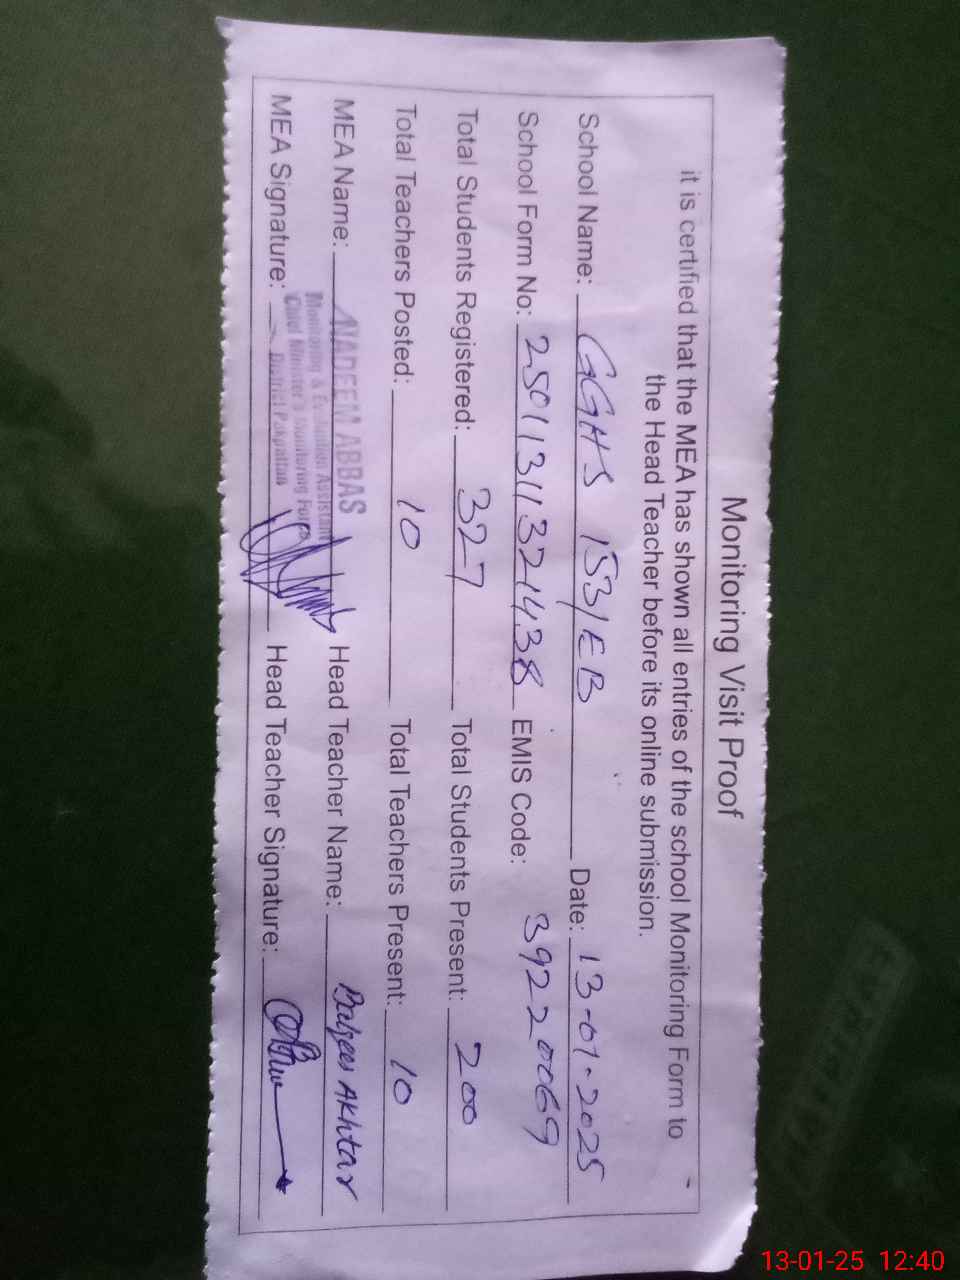 Monitoring Visit Proof
it is certified that the MEA has shown all entries of the school Monitoring Form to
the Head Teacher before its online submission.
School Name: GGHS 153/EB Date: 13-01-2025
School Form No: 25011311321438 EMIS Code: 39220069
Total Students Registered: 327 Total Students Present: 200
Total Teachers Posted: 10 Total Teachers Present: 10
MEA Name: NADEEM ABBAS Head Teacher Name: Balqees Akhtar
Monitoring & Evaluation Assistant
Chief Minister's Monitoring Force
District Pakpattan
MEA Signature: Head Teacher Signature:
13-01-25 12:40